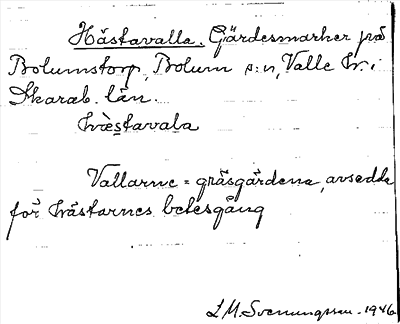 Hästavalla. Gärdesmarker på
Bolumstorp, Bolum s:n, Valle hr. i
Skarab. län.
hæstavala
Vallarne = gräsgärdena, avsedda
för hästarnes betesgång
L.M. Svenungsson - 1946